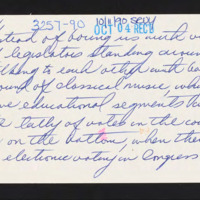 3257-90 10/1/90 SCPW
OCT 04 REC'D
Instead of boring us with v
legislators standing aroun
talking to each other with ba
ound of classical music, wh
ve educational segments
e tally of votes in the co
on the bottom, when the
electronic voting in Congress